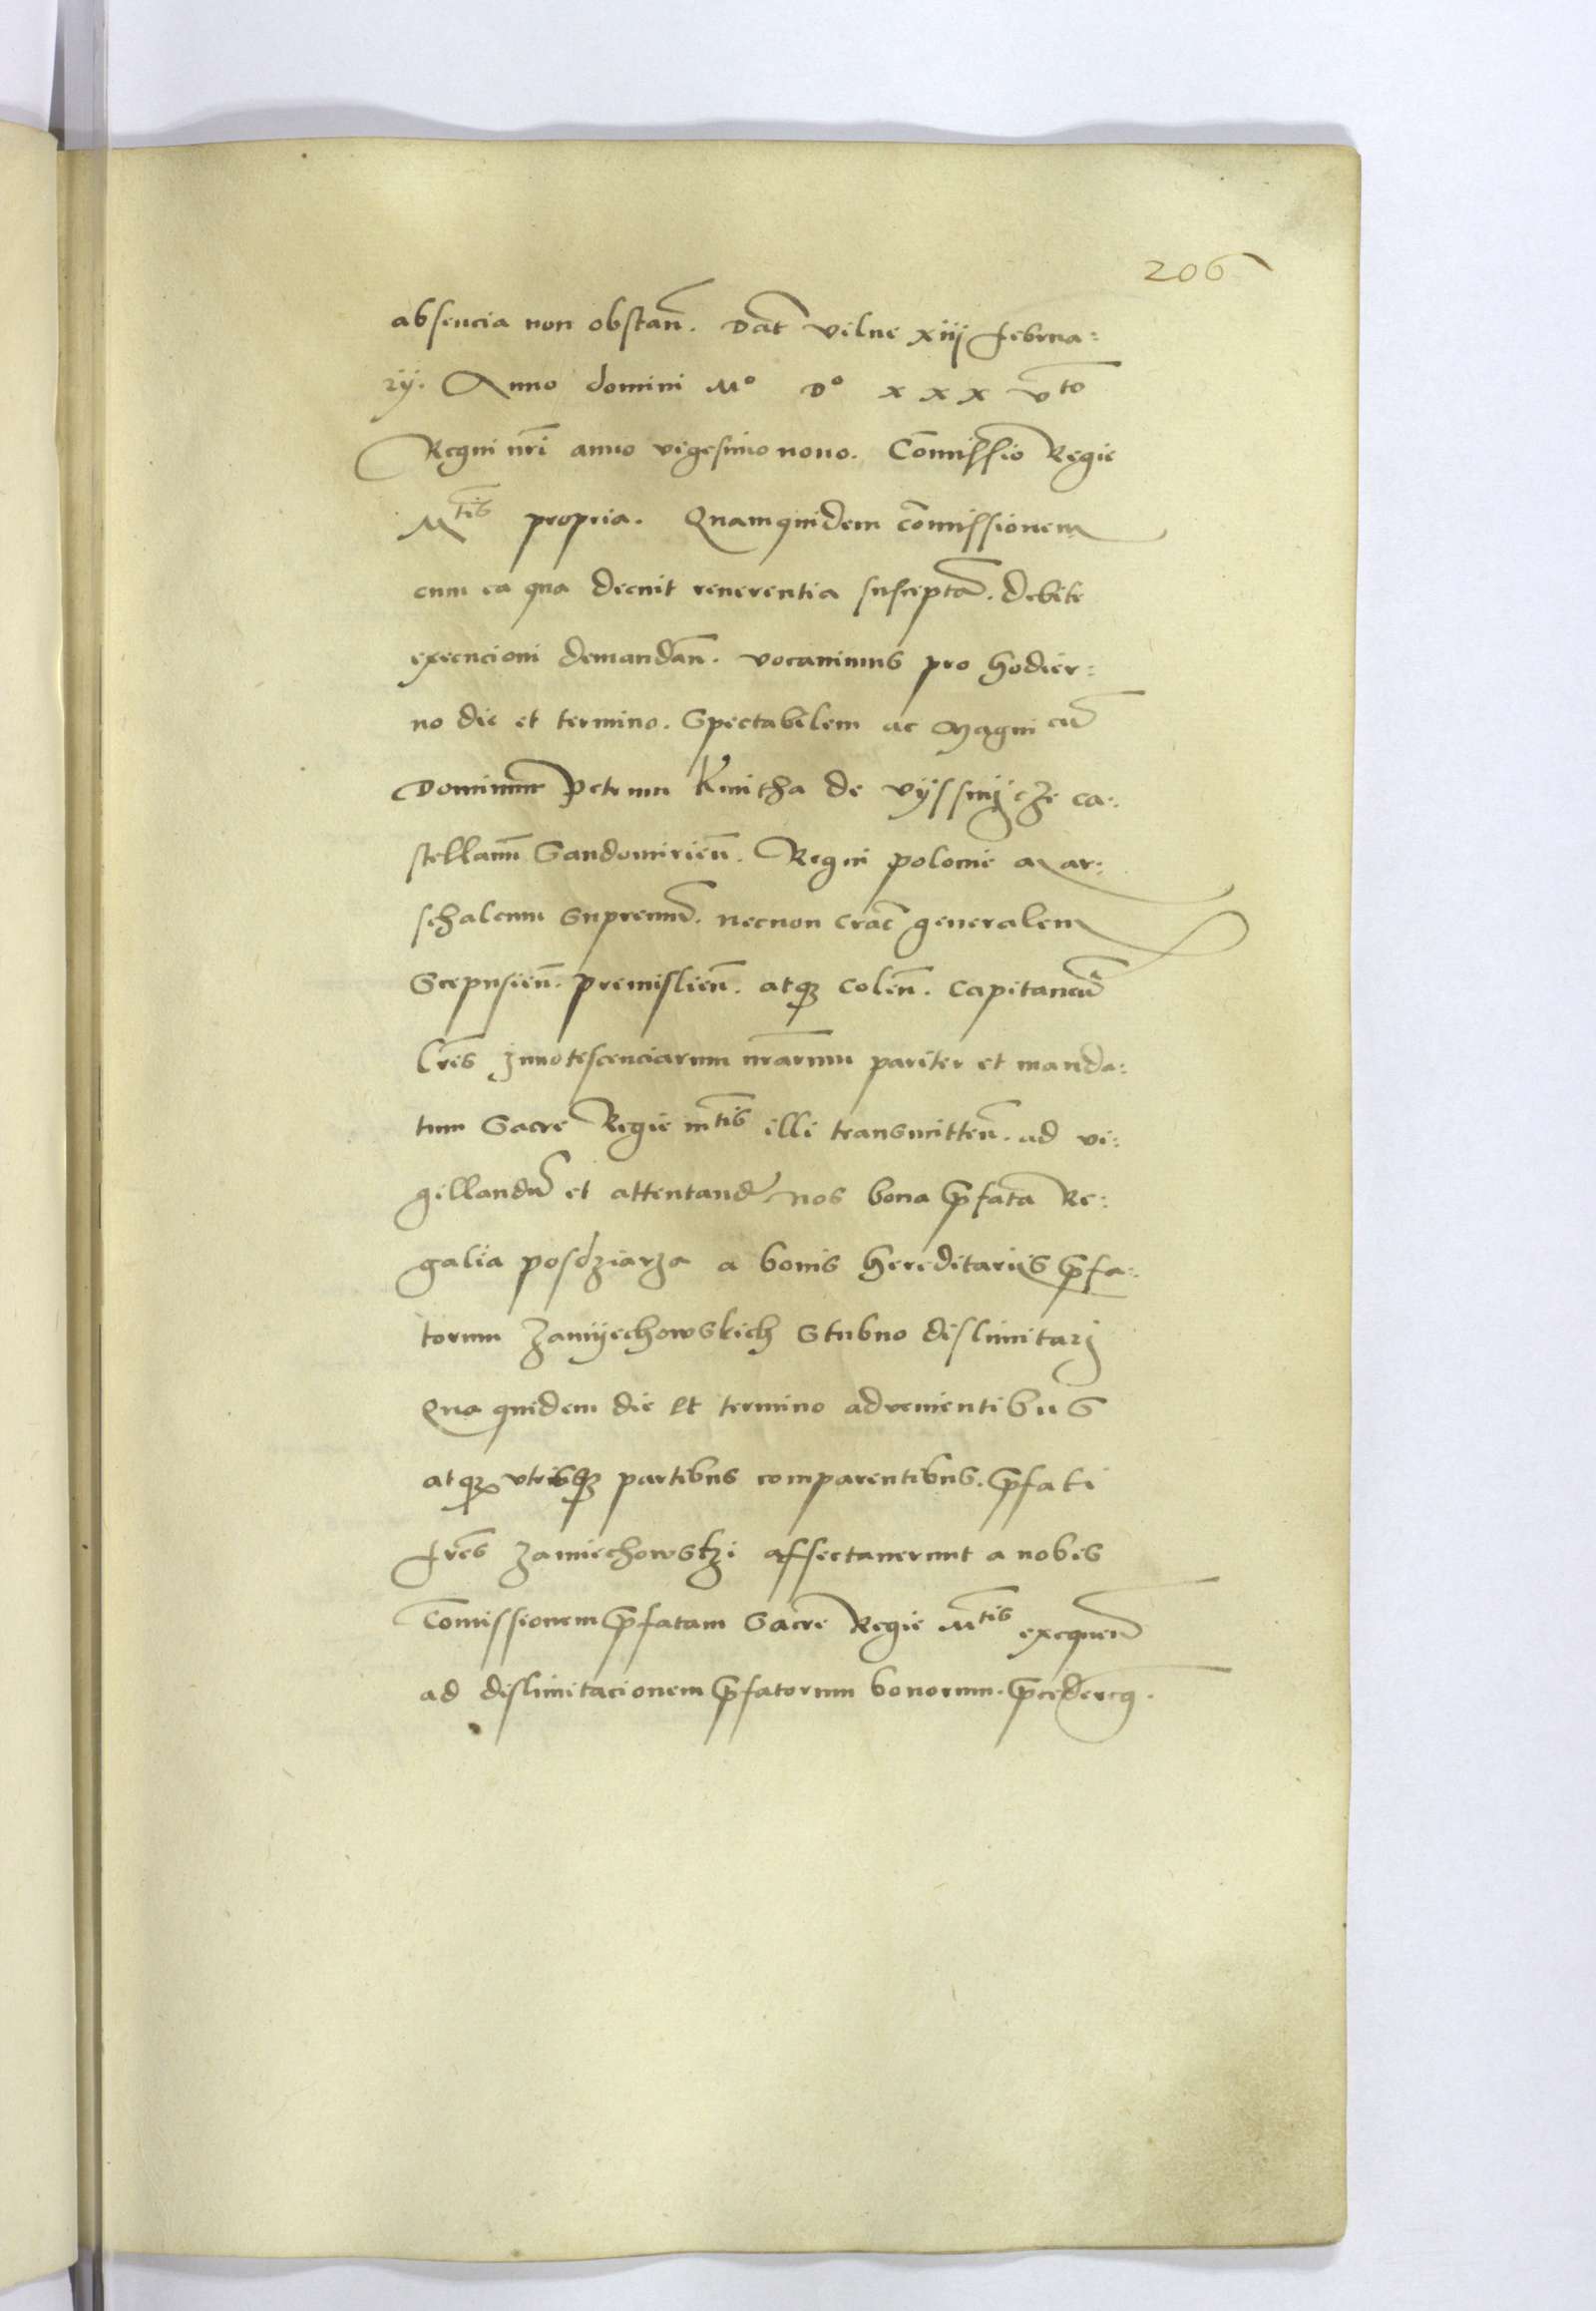 206
absencia non obstan̄. Dat̄ vilne xiij februa:
rij. Anno domini Mº Dº x x x vto
Regni nr̄i anno vigesimo nouo. Com̄issio Regie
Mtis propria. Quamquidem com̄issionem
cum ea qua decuit reuerentia susceptā. debite
execucioni demandan̄. vocauimus pro hodier:
no die et termino. Spectabilem ac Magnicū
Dominum Petrum Kmitha de vÿssnijcze ca:
stellanū Sandomirien̄. Regni polonie Mar:
schalcum Supremū. necnon Crac̄ generalem
Scepusien̄. premislien̄. atqȝ Colen̄. Capitaneū
Lr̄es Innotescenciarum nr̄arum pariter et manda:
tum Sacre Regie mtis illi transmitten̄. ad vi:
gillandū et attentand̄ nos bona p̄fata Re:
galia posdziarza a bonis hereditarijs p̄fa:
torum Zamÿechowskich Stubno dislimitarj
Qua quidem die et termino aduenientibus
atqȝ vtrisqȝ partibus comparentibus. p̄fati
fr̄es Zamiechowstzi affectauerunt a nobis
Com̄issionem p̄fatam Sacre Regie Mtis exequen̄
ad dislimitacionem p̄fatorum bonorum.